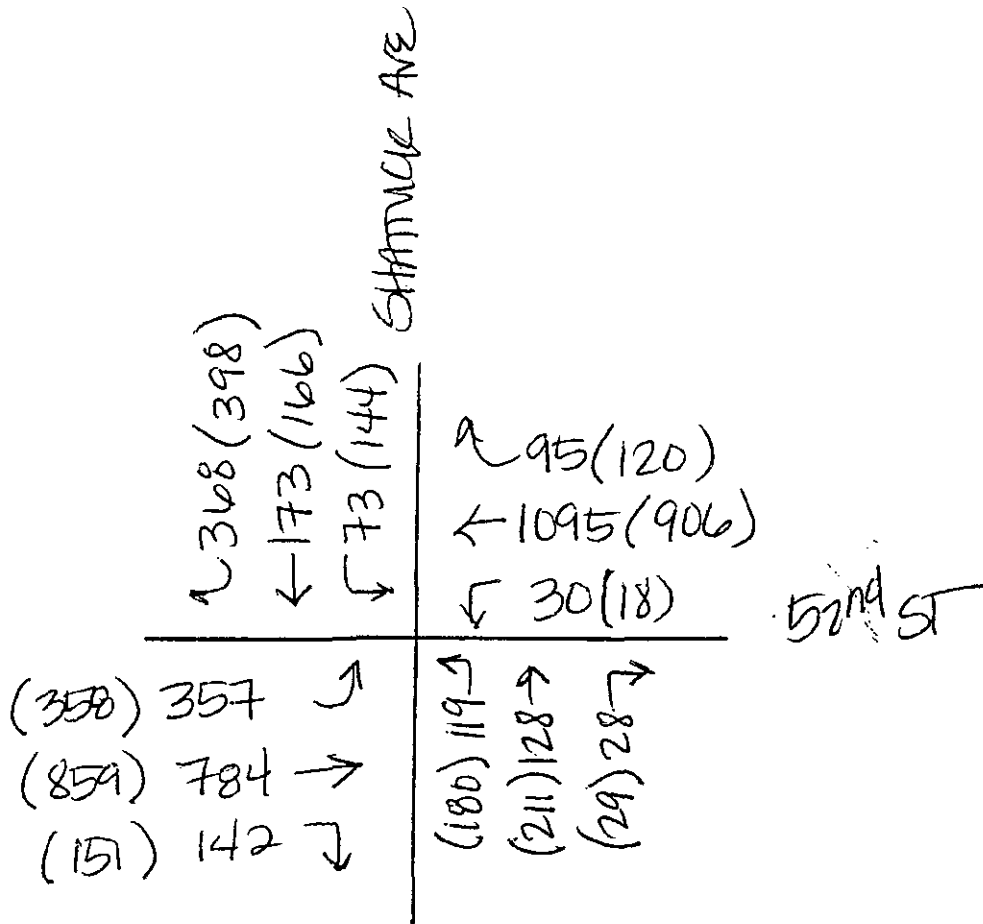 SHATTUCK AVE
368 (398)
173 (166)
73 (144)
95 (120)
1095 (906)
30 (18)
52nd ST
(358) 357
(859) 784
(151) 142
(180) 119
(211) 128
(29) 28